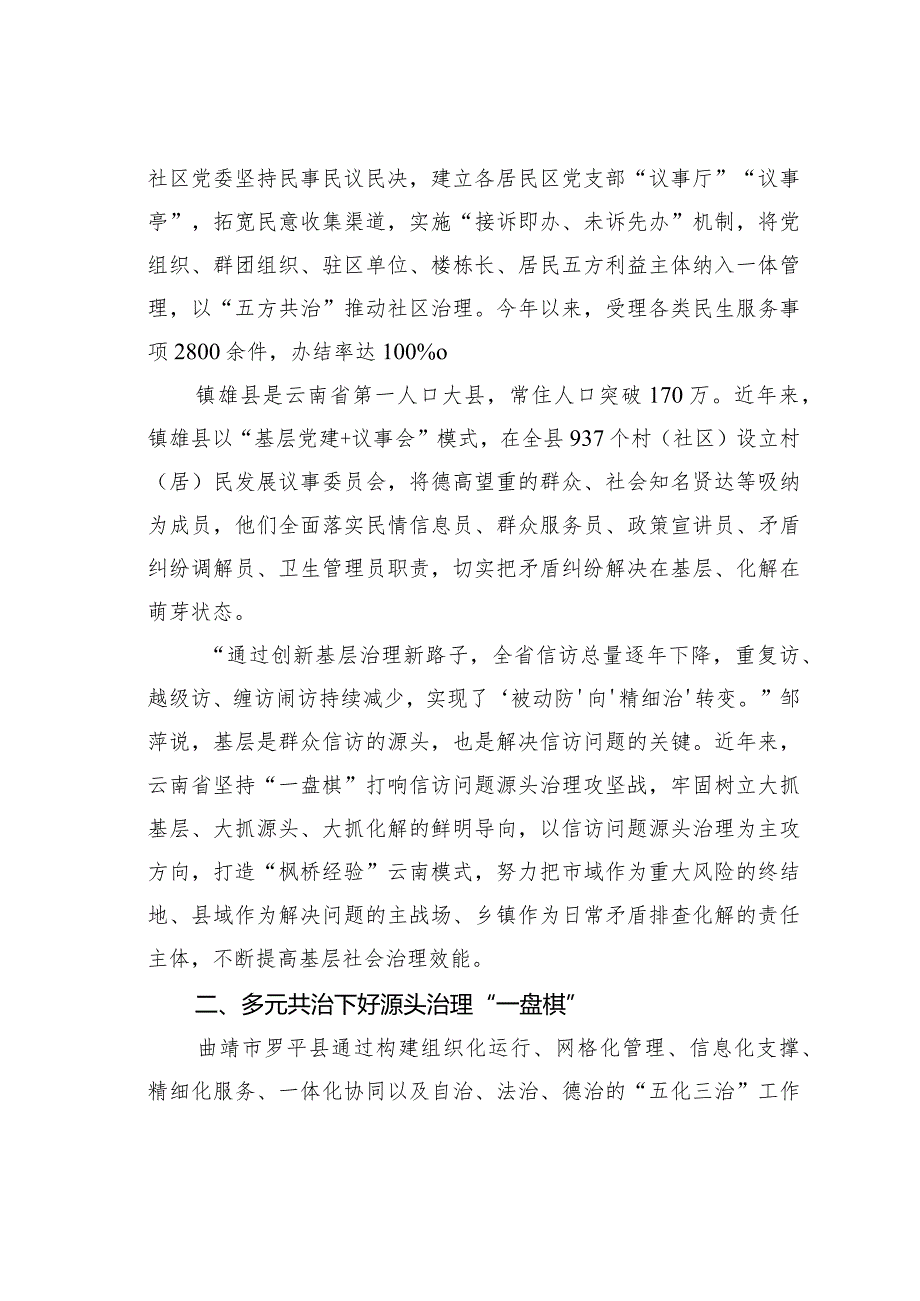 社区党委坚持民事民议民决，建立各居民区党支部“议事厅”“议事
亭”，拓宽民意收集渠道，实施“接诉即办、未诉先办”机制，将党
组织、群团组织、驻区单位、楼栋长、居民五方利益主体纳入一体管
理，以“五方共治”推动社区治理。今年以来，受理各类民生服务事
项 2800 余件，办结率达 100%o
镇雄县是云南省第一人口大县，常住人口突破 170 万。近年来，
镇雄县以“基层党建+议事会”模式，在全县 937 个村（社区）设立村
（居）民发展议事委员会，将德高望重的群众、社会知名贤达等吸纳
为成员，他们全面落实民情信息员、群众服务员、政策宣讲员、矛盾
纠纷调解员、卫生管理员职责，切实把矛盾纠纷解决在基层、化解在
萌芽状态。
“通过创新基层治理新路子，全省信访总量逐年下降，重复访、
越级访、缠访闹访持续减少，实现了‘被动防'向'精细治'转变。”邹
萍说，基层是群众信访的源头，也是解决信访问题的关键。近年来，
云南省坚持“一盘棋”打响信访问题源头治理攻坚战，牢固树立大抓
基层、大抓源头、大抓化解的鲜明导向，以信访问题源头治理为主攻
方向，打造“枫桥经验”云南模式，努力把市域作为重大风险的终结
地、县域作为解决问题的主战场、乡镇作为日常矛盾排查化解的责任
主体，不断提高基层社会治理效能。
二、多元共治下好源头治理“一盘棋”
曲靖市罗平县通过构建组织化运行、网格化管理、信息化支撑、
精细化服务、一体化协同以及自治、法治、德治的“五化三治”工作